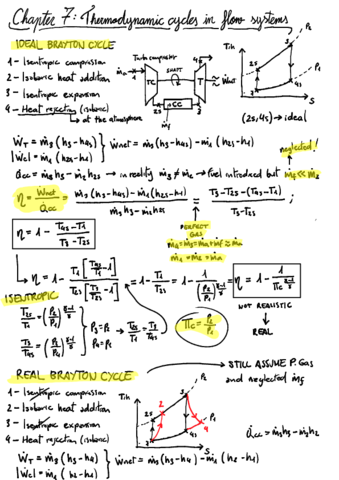 Chapter 7: Thermodynamic cycles in flow systems
IDEAL BRAYTON CYCLE
1 - Isentropic compression
2 - Isobaric heat addition
3 - Isentropic expansion
4 - Heat rejection (isobaric)
↳ at the atmosphere
Turbo compressor
SHAFT
ṁa
TC
T
CC
ṁf
Ẇnet
1
2s
3
4s
T,h
P2
P1
S
(2s, 4s) → ideal
ẆT = ṁ3 (h3 - h4s)
|Ẇc| = ṁ1 (h2s - h1)
Ẇnet = ṁ3 (h3 - h4s) - ṁ1 (h2s - h1)
neglected!
Q̇cc = ṁ3 h3 - ṁ2 h2s → in reality ṁ3 ≠ ṁ2 → fuel introduced but ṁf << ṁa
η = Ẇnet / Q̇cc = ṁ3 (h3 - h4s) - ṁ1 (h2s - h1) / ṁ3 h3 - ṁ2 h2s = T3 - T2s - (T4s - T1) / T3 - T2s ;
PERFECT GAS
η = 1 - T4s - T1 / T3 - T2s
ṁ4 = ṁ3 = ṁa + ṁf ≈ ṁa
ṁ1 = ṁ2 = ṁa
↳ η = 1 - T1 [T4s/T1 - 1] / T2s [T3/T2s - 1] = 1 - T1/T2s = 1 - 1/(P2/P1)^(γ-1/γ) = η = 1 - 1/Πc^(γ-1/γ)
ISENTROPIC
T2s/T1 = (P2/P1)^(γ-1/γ)
T3/T4s = (P3/P4)^(γ-1/γ)
P2 = P3
P4 = P1
→ T4s/T1 = T3/T2s
Πc = P2/P1
NOT REALISTIC
↓
REAL
REAL BRAYTON CYCLE → STILL ASSUME P. Gas
and neglected ṁf
1 - Isentropic compression
2 - Isobaric heat addition
3 - Isentropic expansion
4 - Heat rejection (isobaric)
T,h
P2
P1
S
2s
2
3
4s
4
Q̇cc = ṁ3 h3 - ṁ2 h2
ẆT = ṁ3 (h3 - h4)
|Ẇc| = ṁ1 (h2 - h1)
Ẇnet = ṁ3 (h3 - h4) - ṁ1 (h2 - h1)